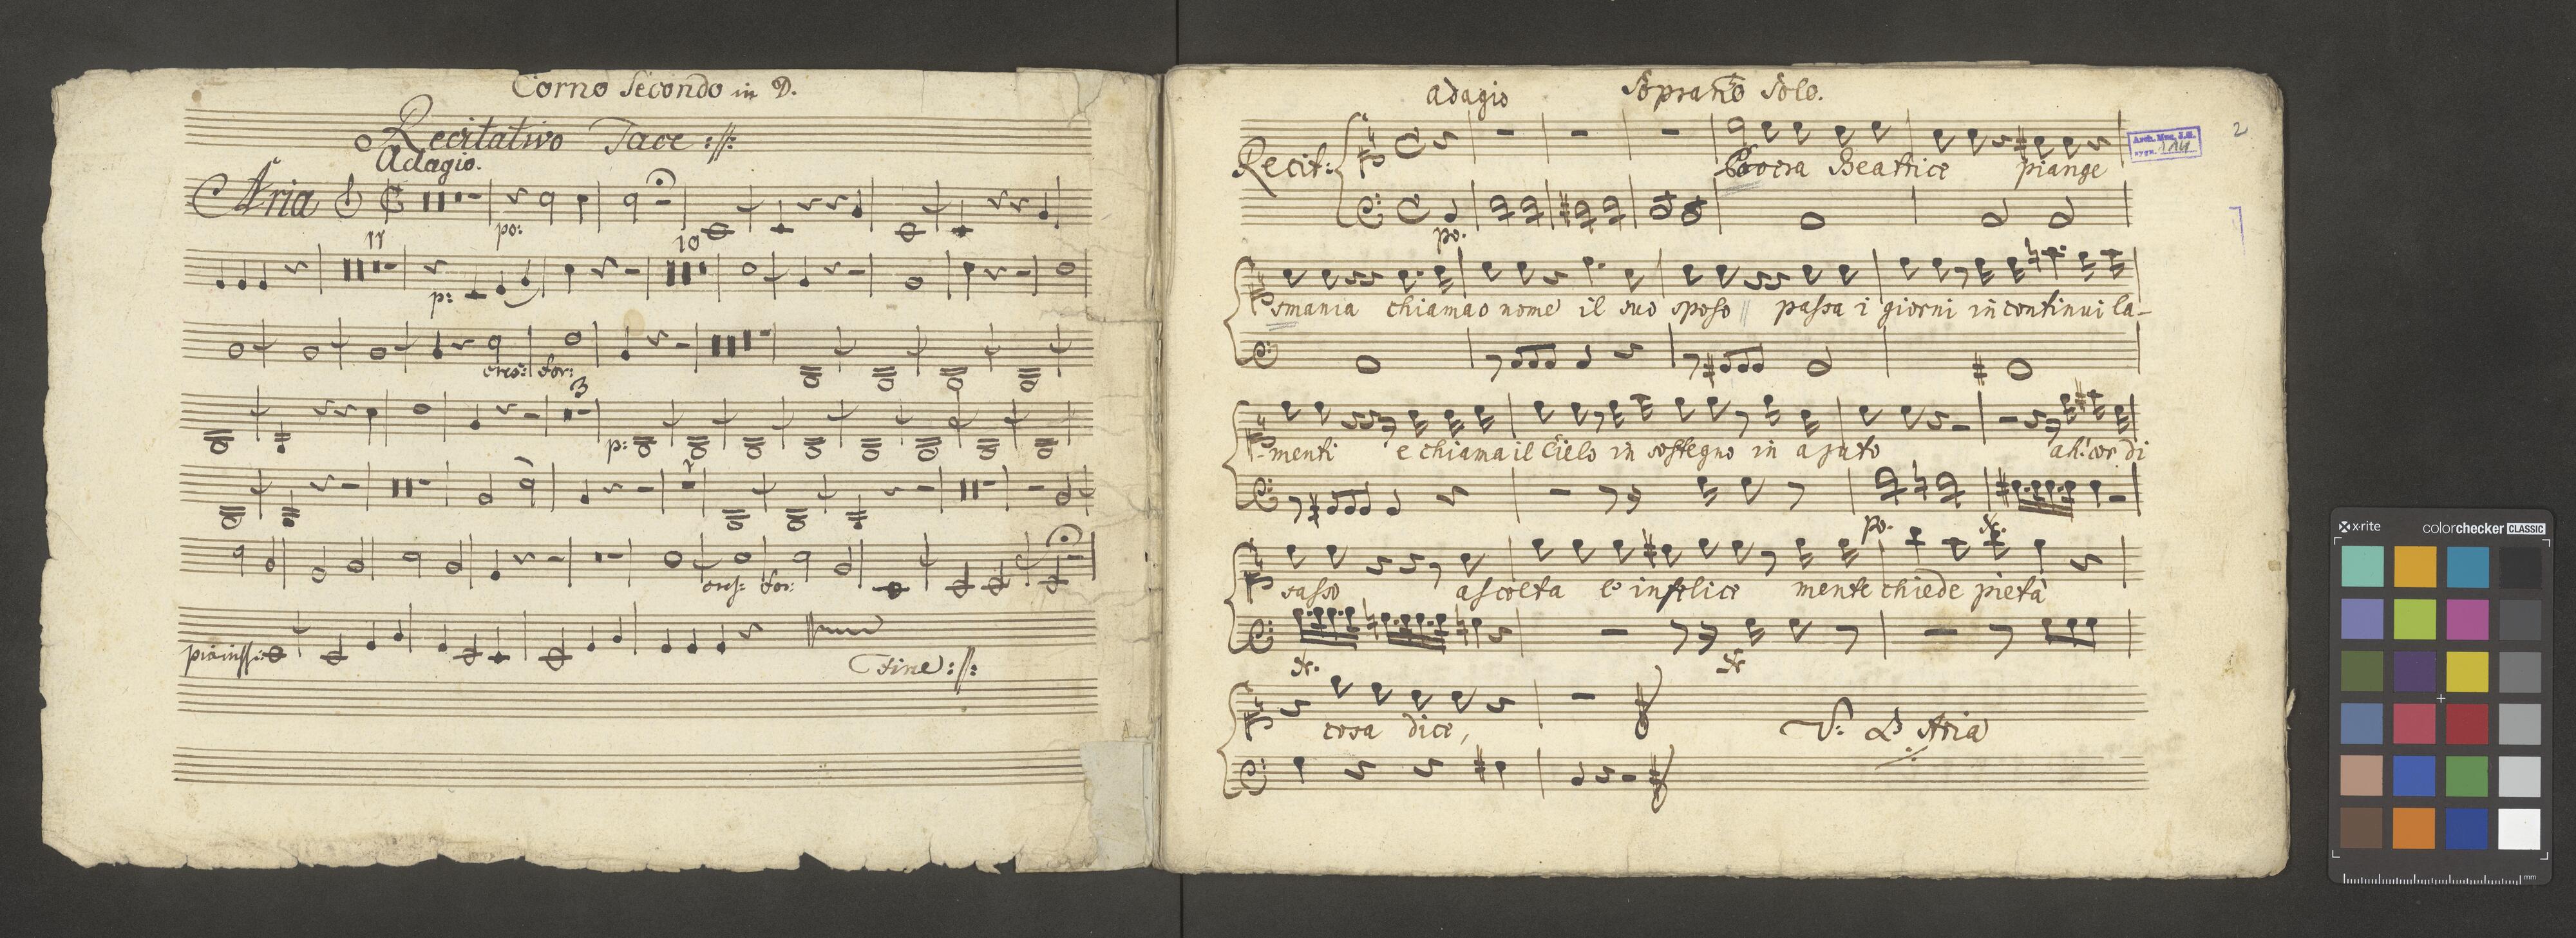 Corno Secondo in D.
Recitativo Tace
Adagio.
Aria
po:
11
10
p:
cres: for:
3
p:
1
cres: for:
pianissi:
Fine
adagio Soprano Solo.
2
Recit:
Povera Beatrice piange
Arch. Muz. J.G.
sygn. 114
po.
smania chiama o nome il suo sposo passa i giorni in continui la-
-menti e chiama il Cielo in sostegno in ajuto ah! cor di
po.
sasso ascolta l'infelice mente chiede pietà
cosa dice,
V: Aria
x-rite colorchecker CLASSIC
mm